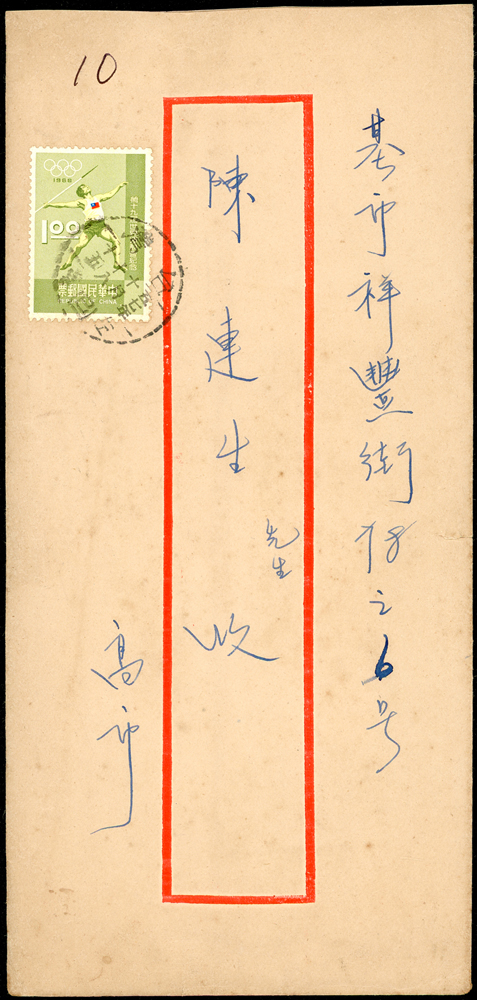 10
基市祥豐街78之6号
陳連生先生收
高市
1968
1.00
中華民國郵票
REPUBLIC OF CHINA